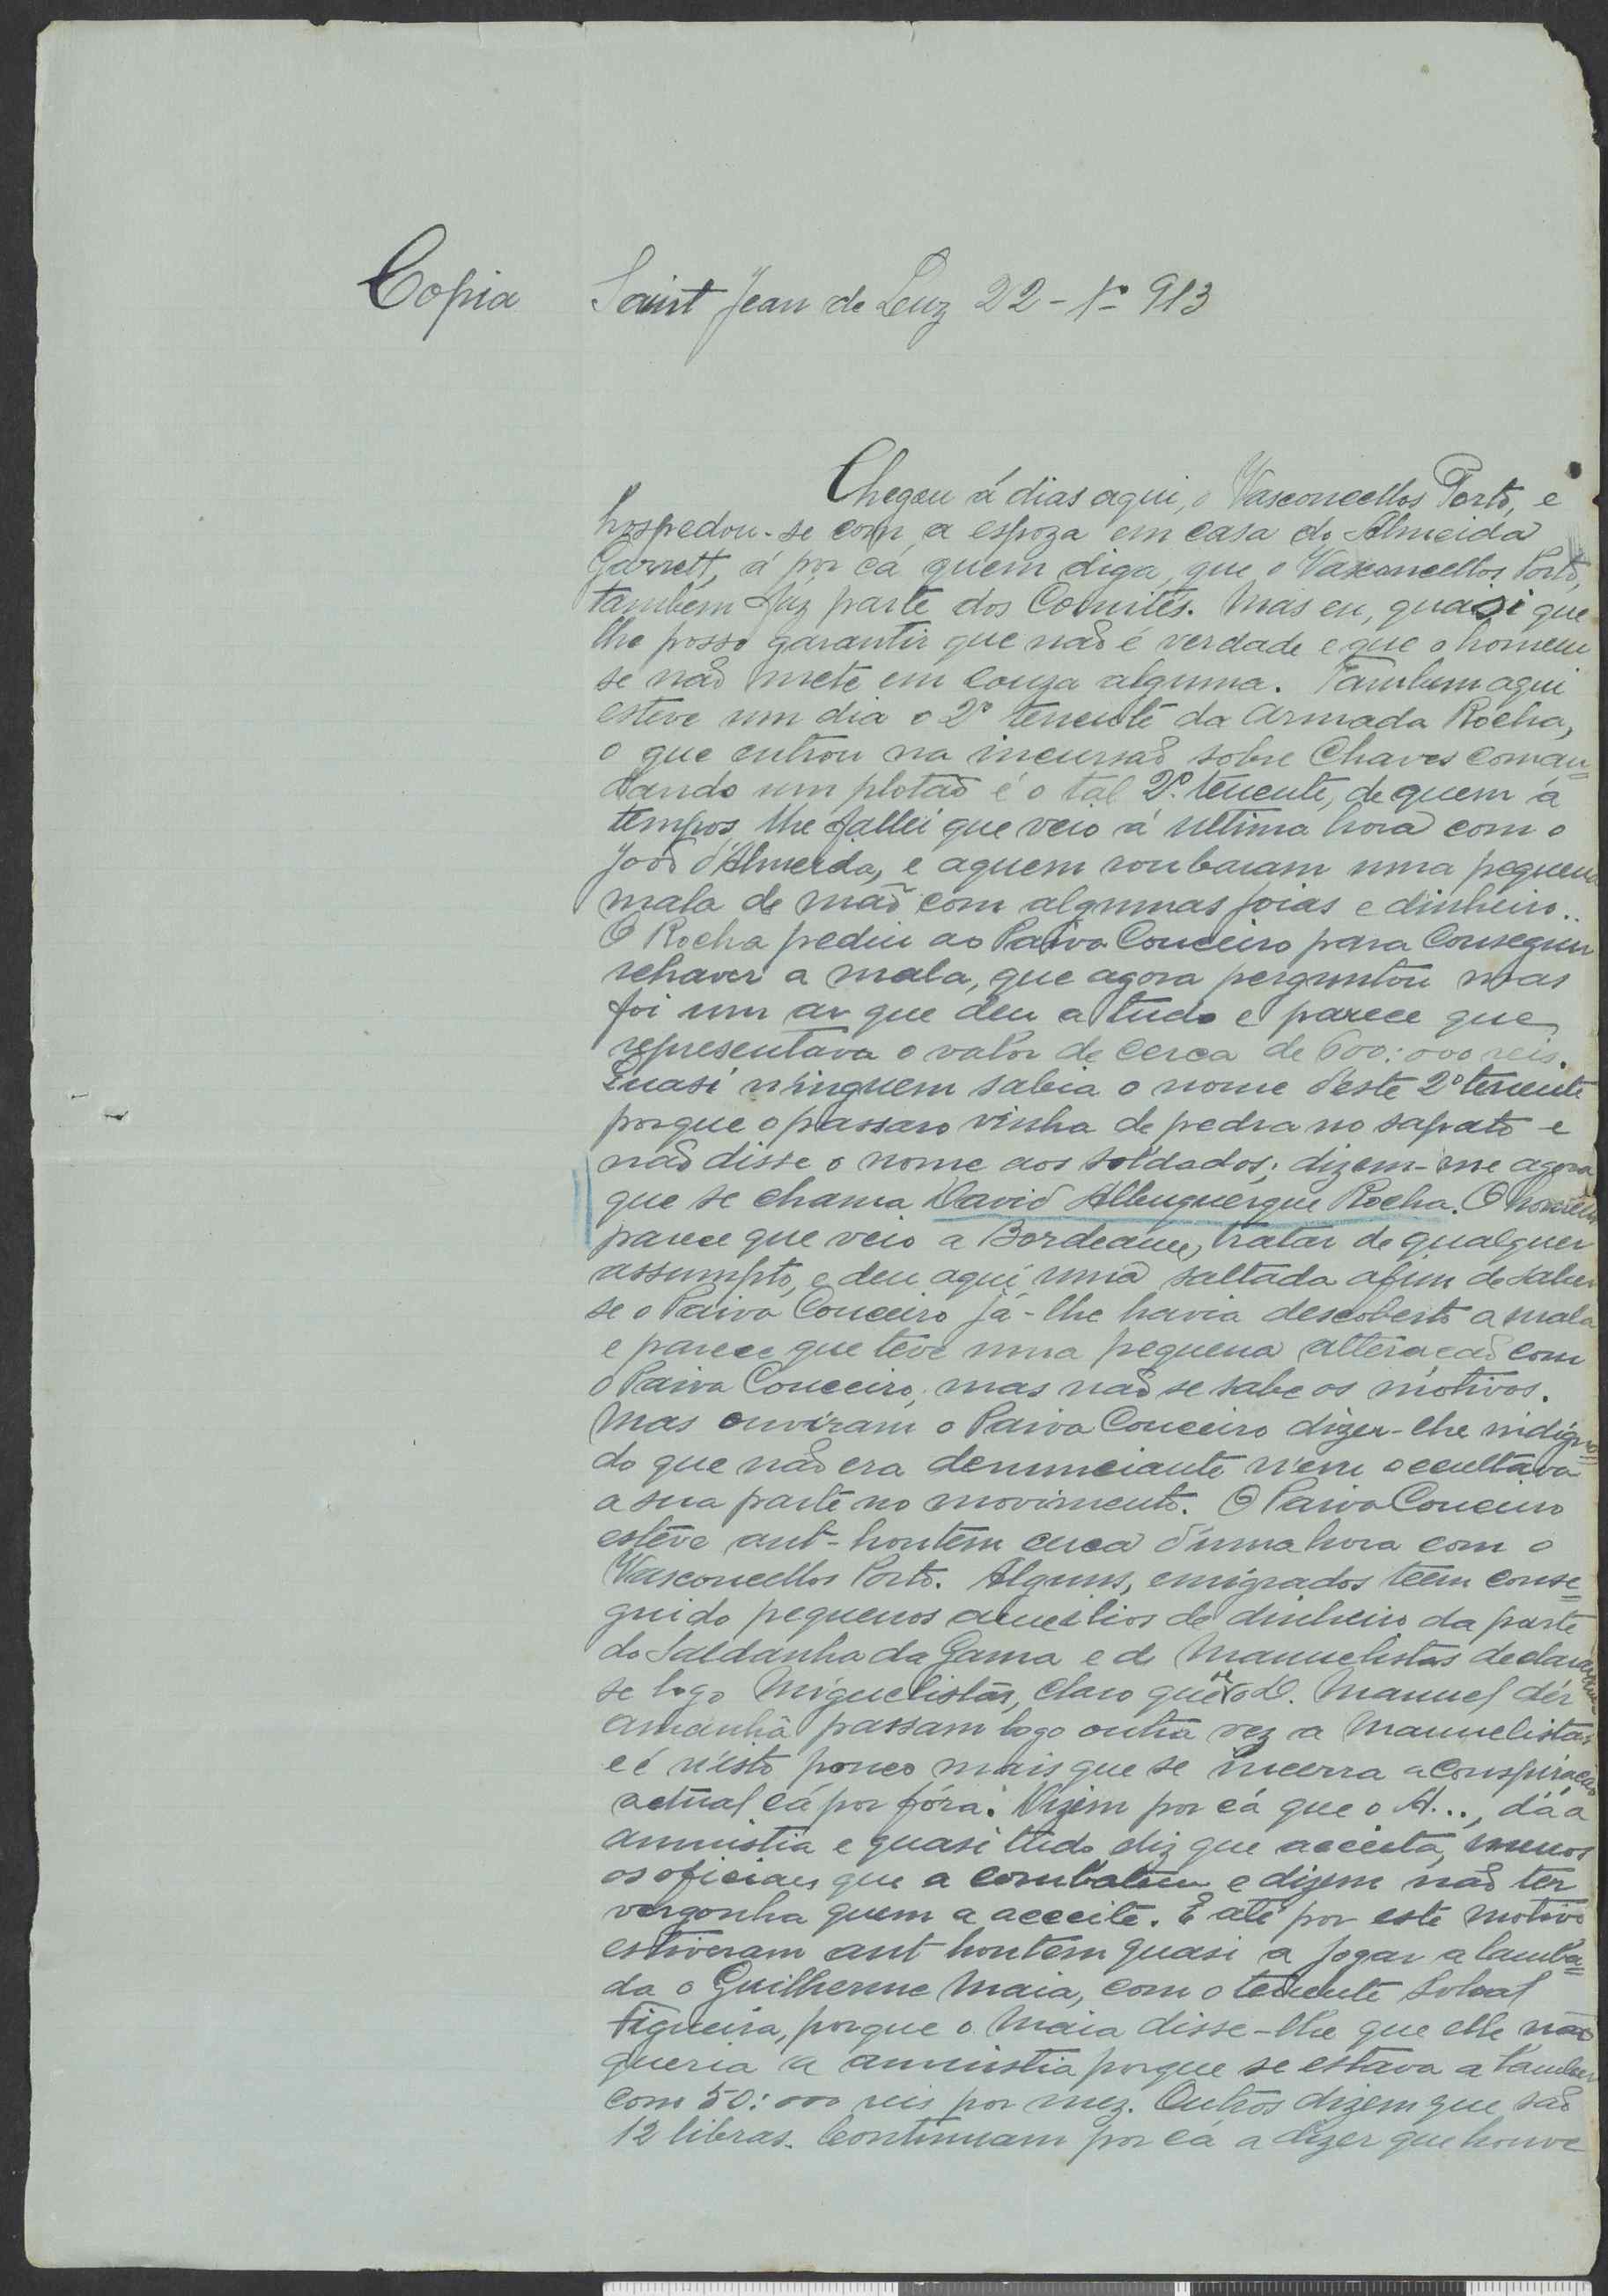 Copia Saint Jean de Luz 22-1º 913
Chegou á dias aqui, o Vasconcellos Porto, e
hospedou-se com a espoza em casa do Almeida
Garrett, á por cá quem diga, que o Vasconcellos Porto,
tambem faz parte dos Comités. Mas eu, quasi que
lhe posso garantir que não é verdade e que o homem
se não mete em couza alguma. Tambem aqui
esteve um dia o 2º tenente da Armada Rocha,
o que entrou na incursão sobre Chaves coman=
dando um plotão é o tal 2º tenente, de quem á
tempos lhe fallei que veio á ultima hora com o
João d'Almeida, e aquem roubaram uma pequena
mala de mão com algumas joias e dinheiro..
O Rocha pediu ao Paiva Couceiro para conseguir
rehaver a mala, que agora perguntou mas
foi um ar que deu a tudo e parece que
representava o valor de cerca de 600:000 reis.
Quasi ninguem sabia o nome d'este 2º tenente
porque o passaro vinha de pedra no sapato e
não disse o nome aos soldados; dizem-me agora
que se chama David Albuquerque Rocha. O homem
parece que veio a Bordeaux, tratar de qualquer
assumpto, e deu aqui uma saltada afim de saber
se o Paiva Couceiro já-lhe havia descoberto a mala
e parece que teve uma pequena alteração com
o Paiva Couceiro, mas não se sabe os motivos.
Mas ouviram o Paiva Couceiro dizer-lhe indigna=
do que não era denunciante nem occultava
a sua parte no movimento. O Paiva Couceiro
esteve ant-hontem cerca d'uma hora com o
Vasconcellos Porto. Alguns, emigrados teem conse=
guido pequenos auxilios de dinheiro da parte
do Saldanha da Gama e de Manuelistas declaram
se logo Miguelistas, claro que se o D. Manuel dér
amanhã passam logo outra vez a Manuelistas
e é n'isto pouco mais que se encerra a conspiração
actual cá por fóra. Dizem por cá que o A..., dá a
amnistia e quasi tudo diz que acceita, menos
os oficiaes que a combatem e dizem não ter
vergonha quem a acceite. E até por este motivo
estiveram ant hontem quasi a jogar a lamba=
da o Guilherme Maia, com o tenente Sobral
Figueira, porque o Maia disse-lhe que elle não
queria a amnistia porque se estava a lamber
com 50:000 reis por mez. Outros dizem que são
12 libras. Continuam por cá a dizer que houve